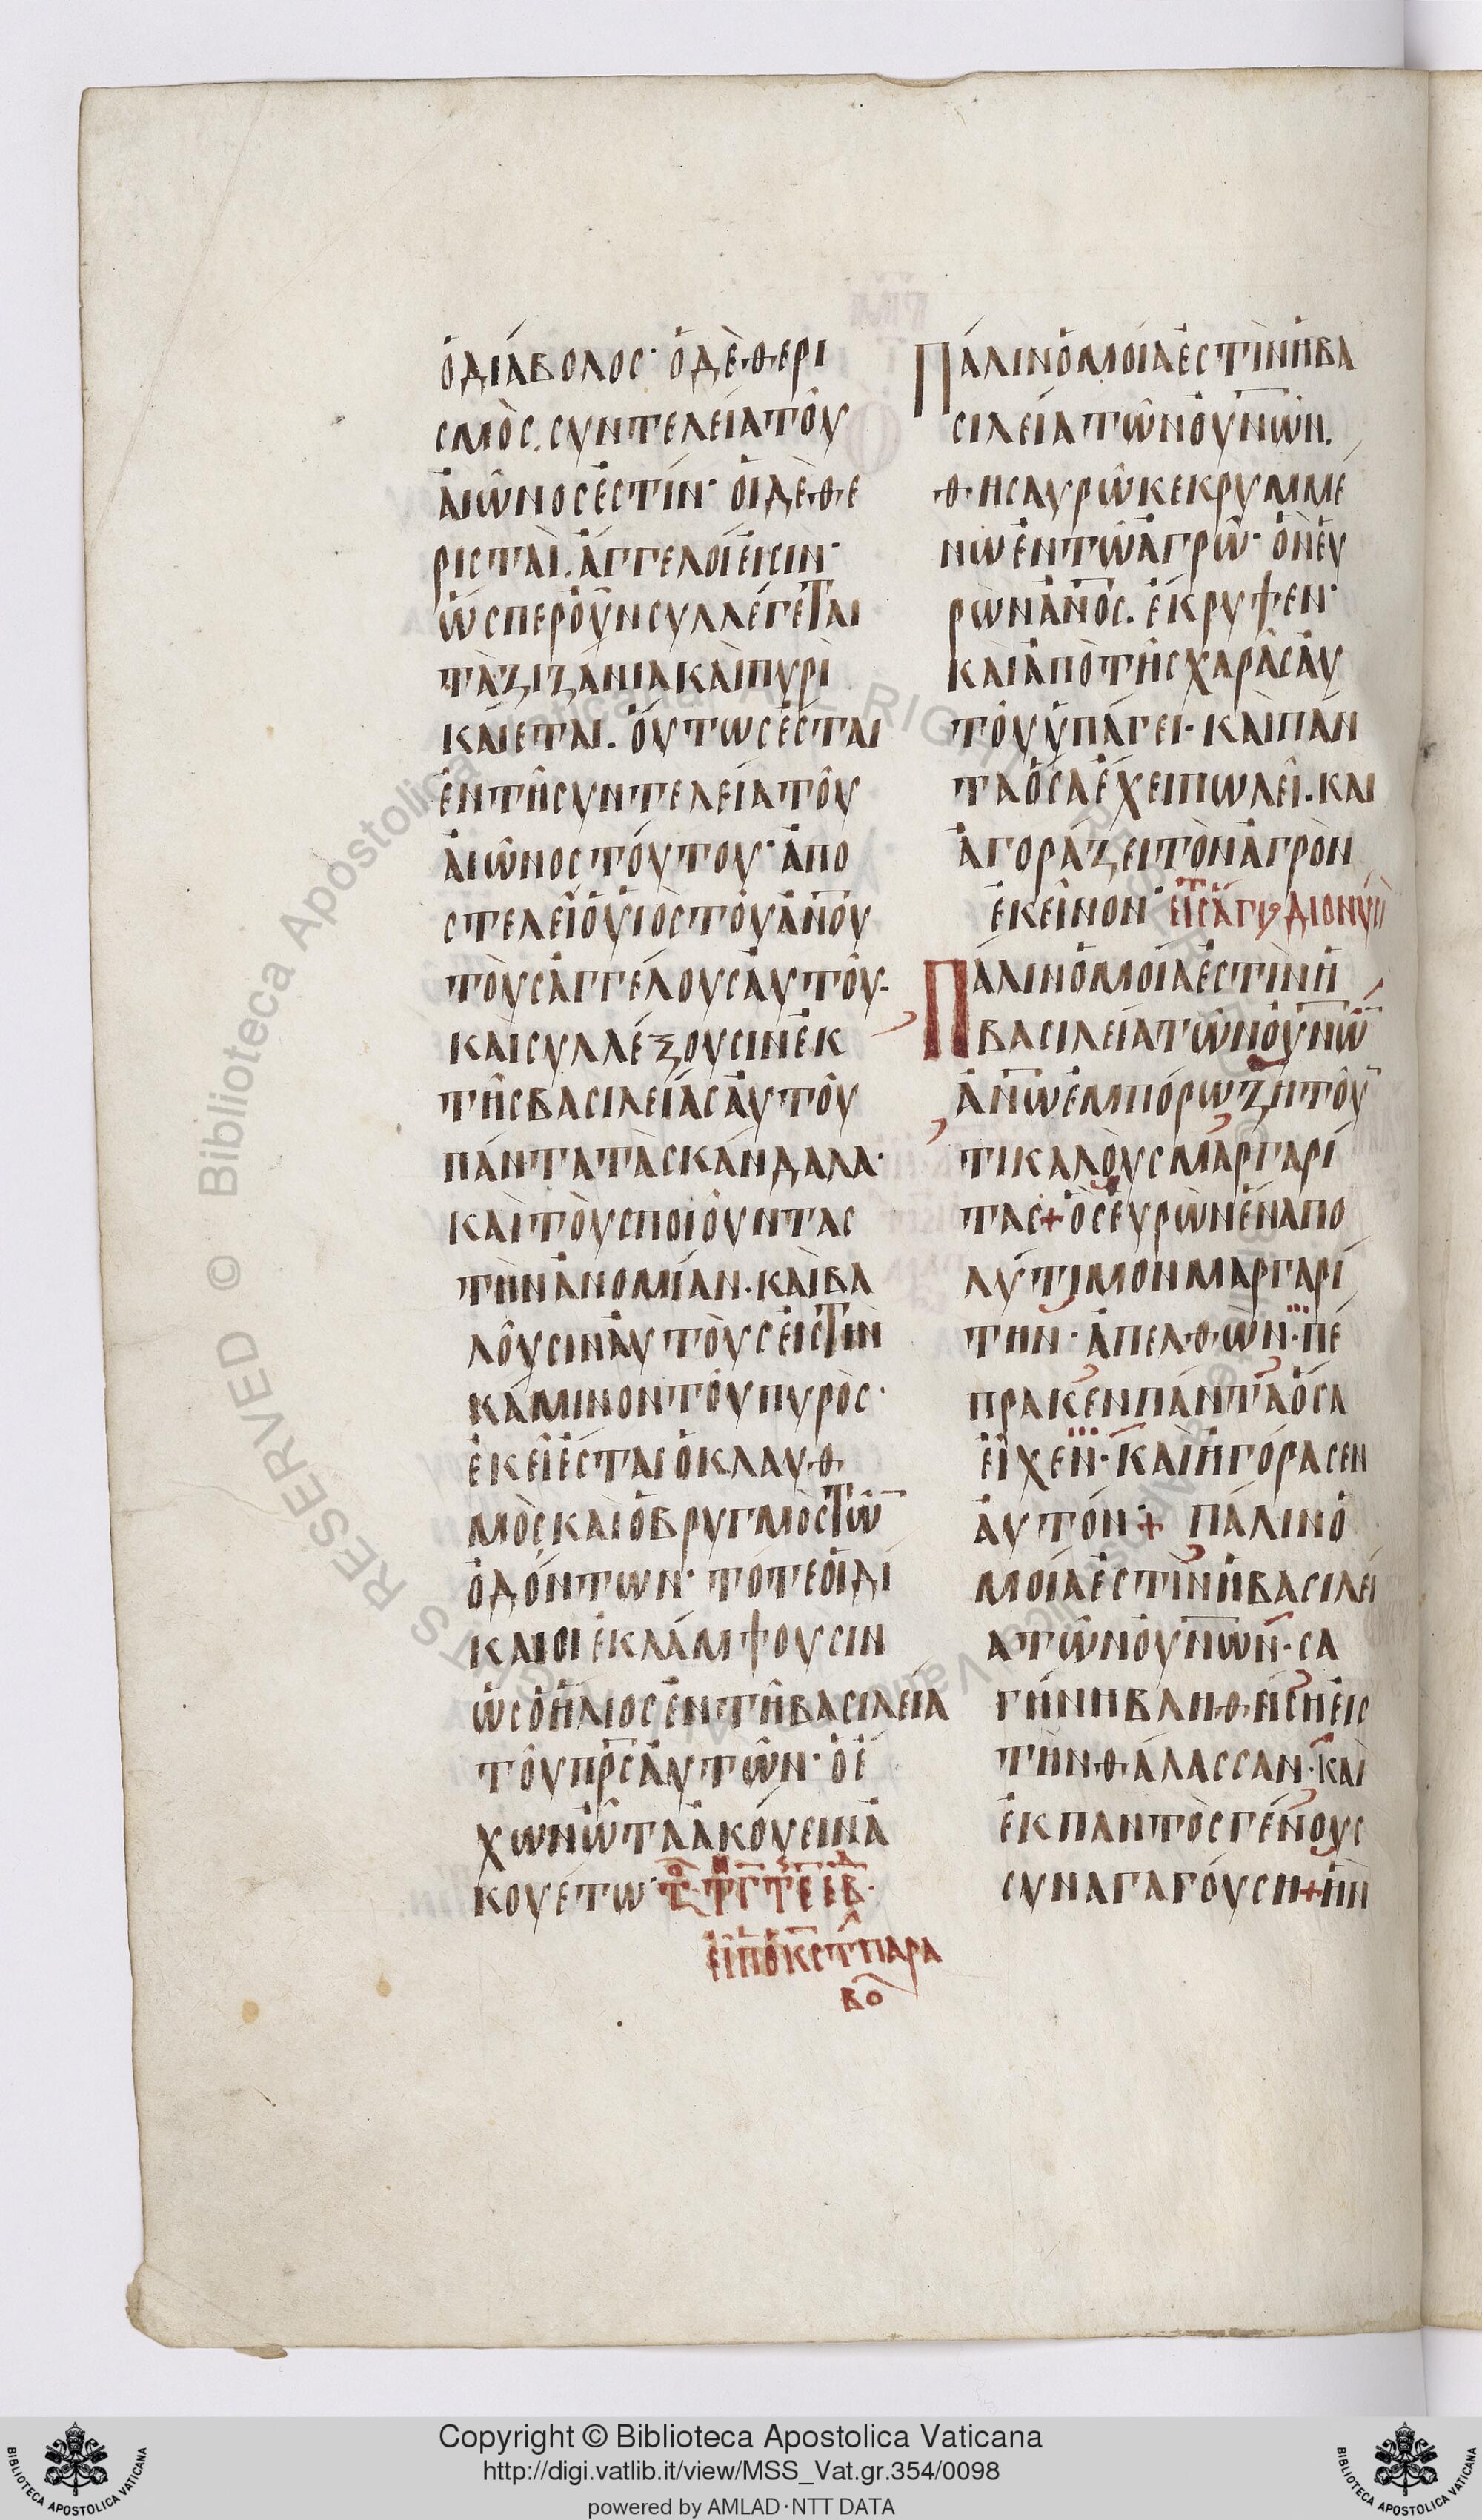 ὁ διάβολος· ὁ δὲ θερι
σμὸς. συντελεία τοῦ
ἀιῶνος ἐστίν· ὁι δὲ θε
ρισταὶ. ἄγγελοί ἐισιν·
ὥσπερ ὀῦν συλλέγεται
τὰ ζιζάνια καὶ πυρὶ
κάιεται. ὅυτως ἔσται
ἐν τῆ συντελεία τοῦ
ἀιῶνος τόυτου· ἀπο
στελεῖ ὁ ὑιὸς τοῦ ἀν̅ου
τοὺς ἀγγέλους ἀυτοῦ·
καὶ συλλέξουσιν ἐκ
τῆς βασιλείας ἀυτοῦ
πάντα τὰ σκάνδαλα·
καὶ τοὺς ποιοῦντας
τὴν ἀνομίαν. καὶ βα
λοῦσιν ἀυτοὺς ἐις τὴν
κάμινον τοῦ πυρὸς·
ἐκεῖ ἔσται ὁ κλαυθ
μὸς καὶ ὁ βρυγμὸς τῶ̅
ὀδόντων· τότε ὁι δί
καιοι ἐκλάμψουσιν
ὡς ὁ ἥλιος ἐν τῆ βασιλεία
τοῦ πρ̅ς ἀυτῶν· ὁ ἔ
χων ὦτα ἀκόυειν ἀ
κουέτω·
παρα
βο
Πάλιν ὁμοία ἐστὶν ἡ βα
σιλεία τῶν ὀυν̅ῶν.
θησαυρῶ κεκρυμμέ
νω ἐν τῶ ἀγρῶ· ὃν ἑυ
ρὼν ἄν̅ος. ἔκρυψεν·
καὶ ἀπὸ τῆς χαρᾶς ἀυ
τοῦ ὑπάγει· καὶ πάν
τα ὅσα ἔχει πωλεῖ. και
ἀγοράζει τὸν ἀγρὸν
ἐκεῖνον· διονυσι
Πάλιν ὁμοία ἐστὶν ἡ
βασιλεία τῶν ὀυν̅ῶ̅
ἀν̅ω ἐμπόρω ζητοῦ̅
τι καλοὺς μαργαρί
τας+ ὃς ἑυρὼν ἕνα πο
λύτιμον μαργαρί
την· ἀπελθων· πέ
πρακεν πάντα ὅσα
ἐῖχεν· καὶ ἠγόρασεν
ἀυτόν+ πάλιν ὁ
μοία ἐστὶν ἡ βασιλεί
α τῶν ὀυν̅ων· σα
γήνη βληθείση ἐις
τὴν θάλασσαν· καὶ
ἐκ παντὸς γένους
συναγαγόυση+ ἣν
Copyright © Biblioteca Apostolica Vaticana
http://digi.vatlib.it/view/MSS_Vat.gr.354/0098
powered by AMLAD·NTT DATA